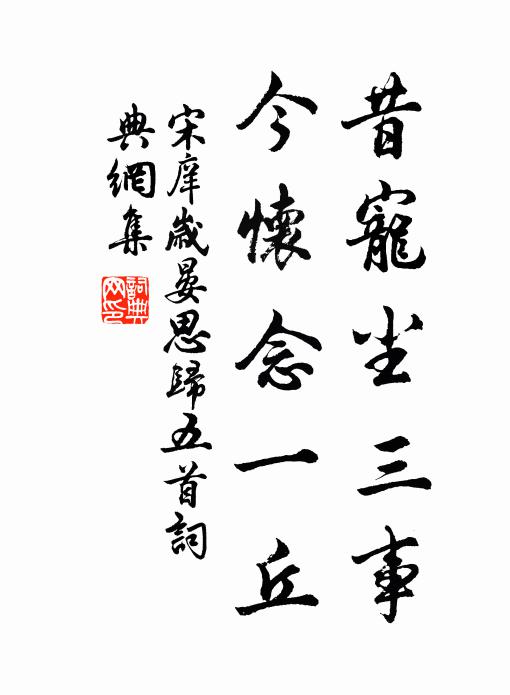 昔寵尘三事
今懷念一丘
宋庠歲晏思歸五首詞
典網集
詞典
网印